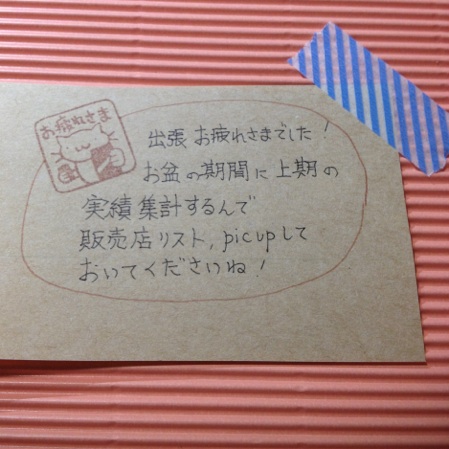 お疲れさま
出張お疲れさまでした!
お盆の期間に上期の
実績集計するんで
販売店リスト,picupして
おいてくださいね!